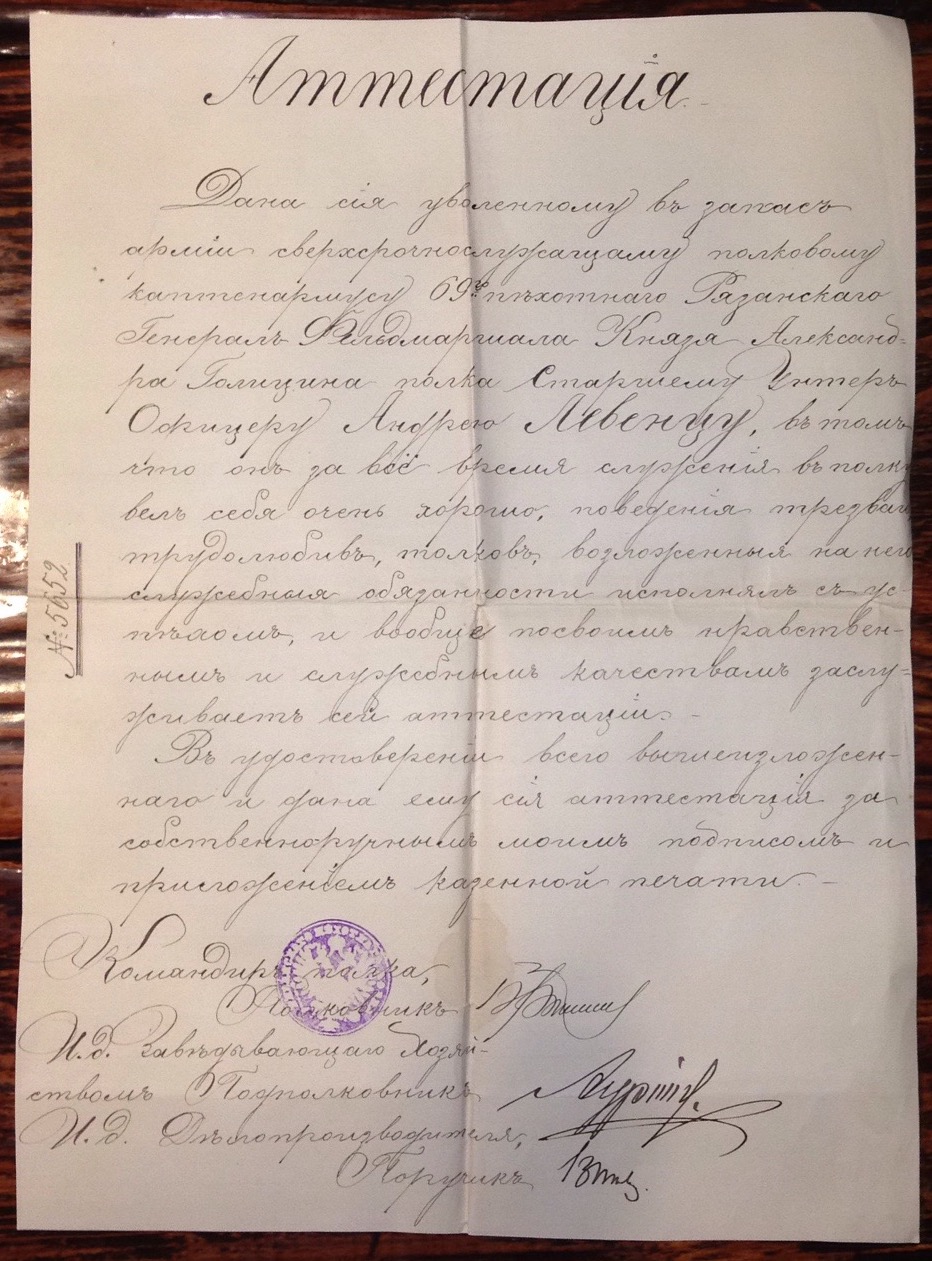 Аттестація.
Дана сія уволенному въ запасъ
арміи сверхсрочнослужащему полковому
каптенармусу 69го пѣхотнаго Рязанскаго
Генералъ Фельдмаршала Князя Александ=
ра Голицина полка Старшему Унтеръ
Офицеру Андрею Левенцу, въ томъ
что онъ за всё время служенія въ полку
велъ себя очень хорошо, поведенія трезваго
трудолюбивъ, толковъ, возложенныя на него
служебныя обязанности исполнялъ съ ус-
пѣхомъ, и вообще посвоимъ нравствен-
нымъ и служебнымъ качествамъ заслу=
живаетъ сей аттестаціи. -
Въ удостовереніи всего вышеизложен-
наго и дана ему сія аттестація за
собственноручнымъ моимъ подписомъ и
приложеніемъ казенной печати. -
№ 5652
Командиръ полка,
Полковникъ
И.д. Завѣдывающаго Хозяй-
ствомъ Подполковникъ
И.д. Дѣлопроизводителя,
Поручикъ